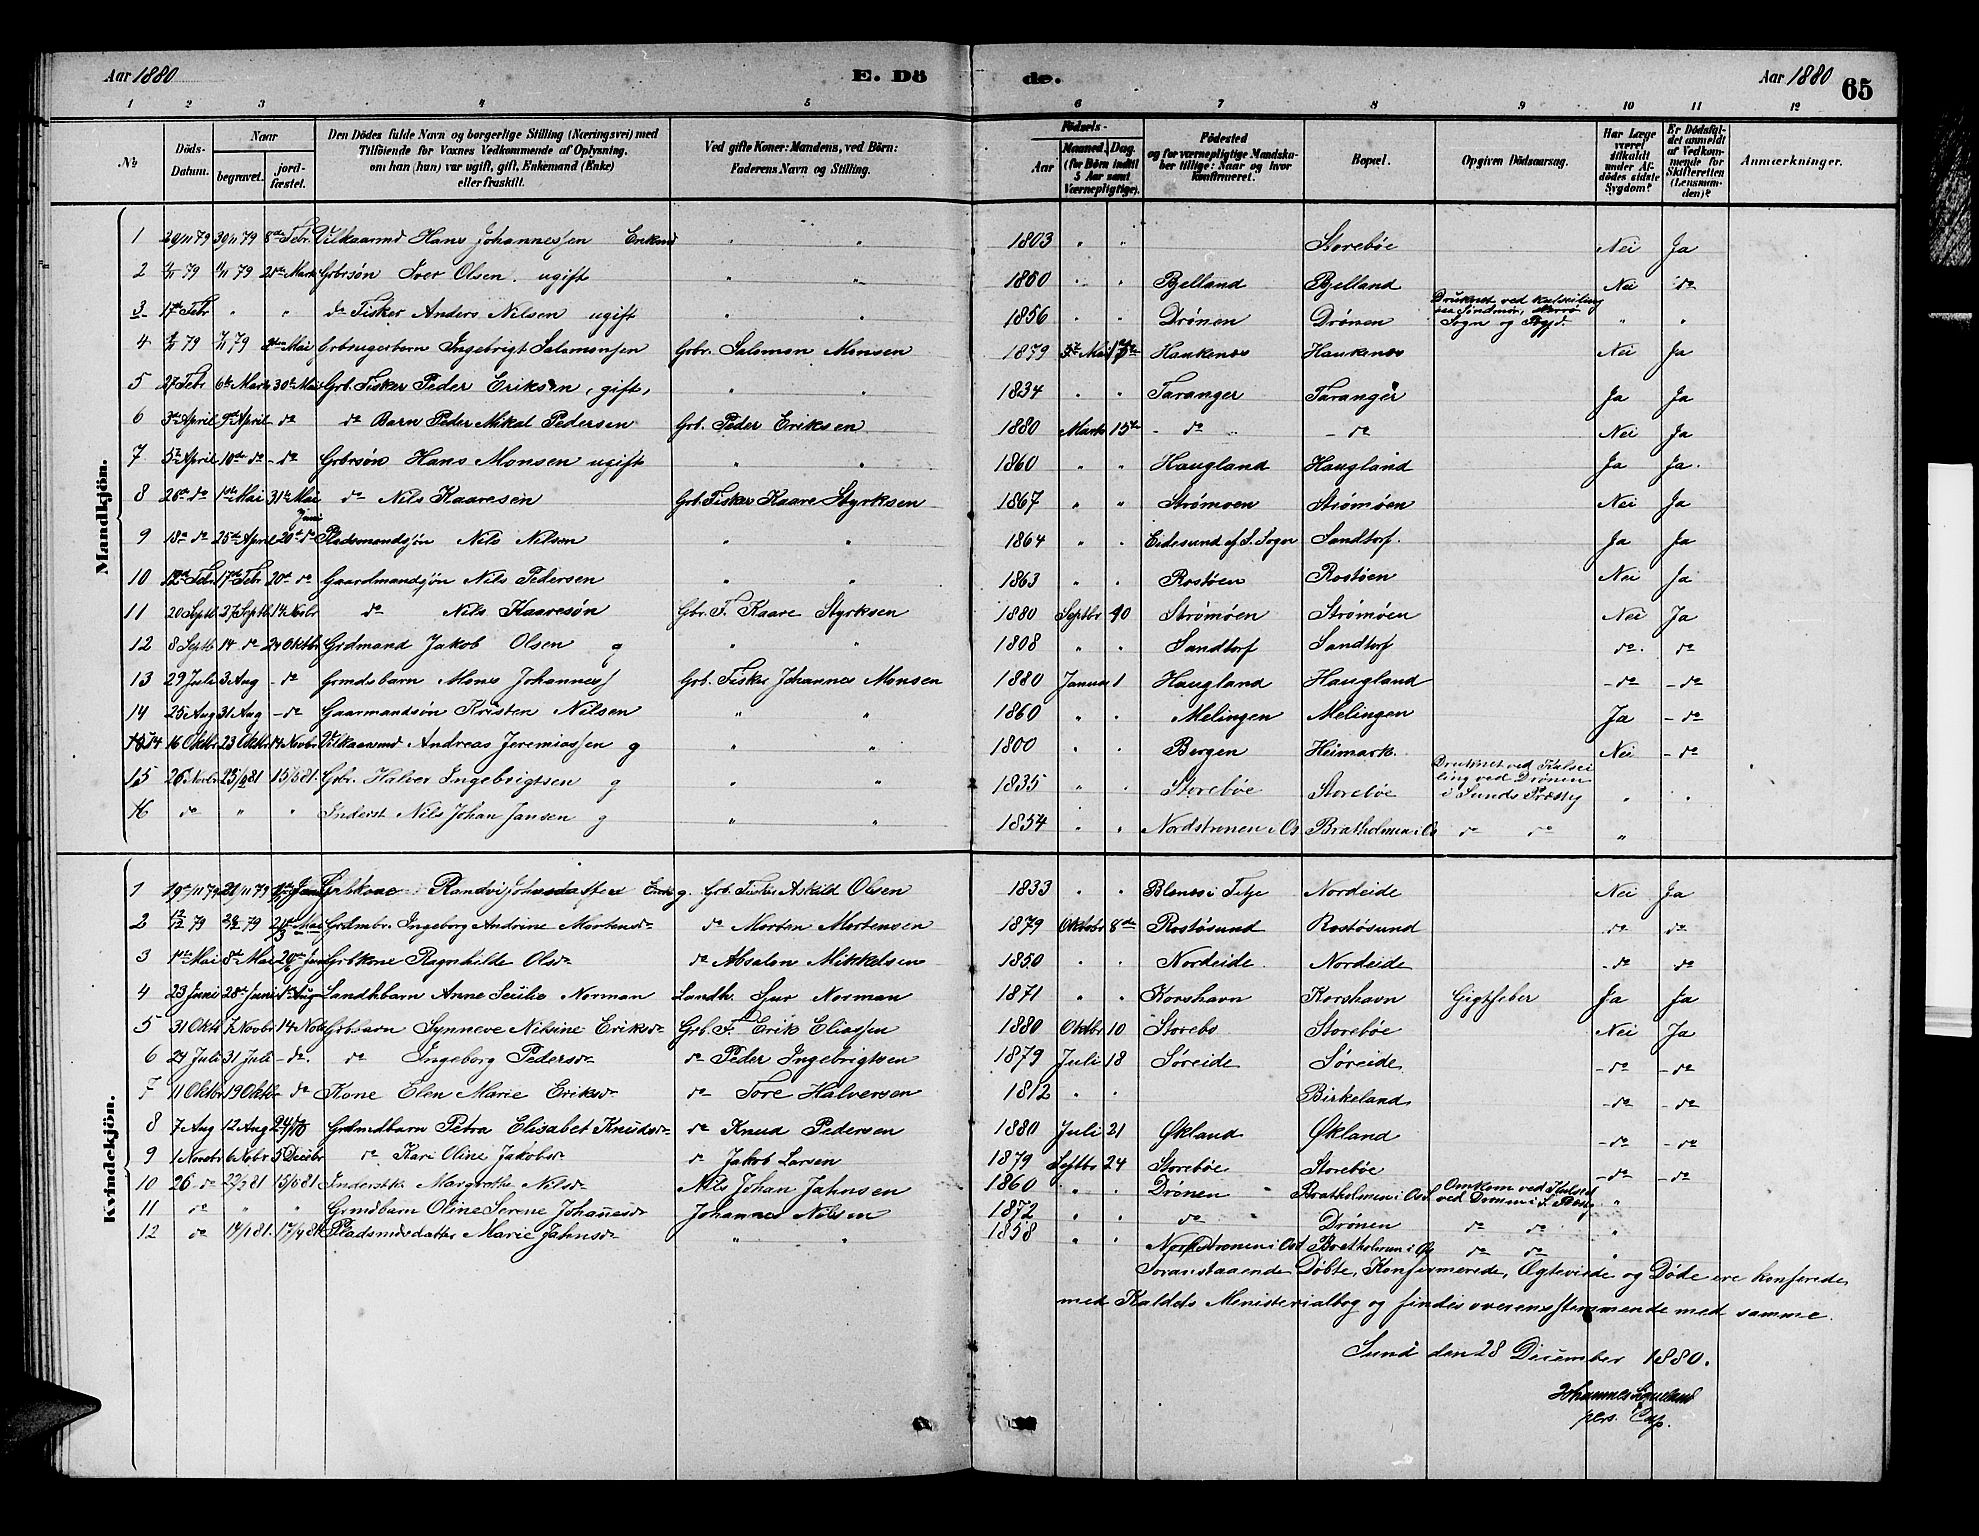 Aar 1880 E. Dö de. Aar 1880 65
1 2 3 4 5 6 7 8 9 10 11 12
No
Döds-Datum.
Naar
begravet.
jord-fæstet.
Den Dödes fulde Navn og borgerlige Stilling (Næringsvei) med
Tilföiende for Voxnes Vedkommende af Oplysning,
om han (hun) var ugift, gift, Enkemand (Enke)
eller fraskilt.
Ved gifte Koner: Mandens, ved Börn:
Faderens Navn og Stilling.
Födsels-
Aar
Maaned. Dag.
(for Börn indtil 5 Aar samt Værnepligtige).
Födested
og for værnepligtige Mandska-
ber tillige: Naar og hvor
konfirmeret.
Bopæl.
Opgiven Dödsaarsag.
Har Læge været tilkaldt under Afdödes sidste Sygdom?
Er Dödsfaldet anmeldt af Vedkommende for Skifteretten (Lensmanden)?
Anmærkninger.
Mandkjön.
1 20/11 79 30/11 79 8de Febr. Vilkaarmd Hans Johannessen Enkemd " " 1803 " " Storebøe Nei Ja
2 79 79 21de Marts Grbrsøn Iver Olsen. ugift " " 1860 " " Bjelland Bjelland Nei do
3 17de Febr " " do Fisker Anders Nilsen ugift " " 1856 " " Drønen Drønen Druknet ved Kulseiling Sogn og Prgjd. " "
4 79 79 Mai Grbrugerbarn Ingebrigt Salamonsen Grbr. Salomon Monsen 1879 Mai Haukenæs Haukenæs Nei Ja
5 27 Febr 6te Marts 30te Mai Grb. Fisker Peder Eriksen, gift, " " 1834 " " Taranger Taranger Ja Ja
6 3de April 9de April do do Barn Peder Mikal Pedersen Grb. Peder Eriksen 1880 Marts 15de - do - do Nei Ja
7 5te April 10de do - do Grbrsøn Hans Monsen ugift " " 1860 " " Haugland Haugland Ja Ja.
8 26de do 1ste Mai 31te Mai do Nils Kaaresen Grb. Fisker Kaare Styrksen 1867 " " Strømøen Strømøen Nei Ja
9 18de do 25de April Juni 20de do Pladsmandsøn Nils Nilsen " " 1864 " " Eidesund af S. Sogn Sandtorf. Ja Ja
10 Febr 17de Febr 20de do Gaardmandsøn Nils Pedersen " " 1863 " " Rostøen Rostøen Nei Ja
11 20 Septb 27 Septb 14 Nvbr do Nils Kaaresøn Gbr. F. Kaare Styrksen 1880 Septbr Strømøen Strømøen Nei Ja
12 8 Septb 14 do 24 Oktbr Grdmand Jakob Olsen g " " 1808 " " Sandtorf Sandtorf do. do
13 29 Juli 3 Aug - do Grmdsbarn Mons Johanness Grb. Fisker Johannes Monsen 1880 Januar 1 Haugland Haugland - do - do
14 25 Aug 31 Aug - do Gaarmandsøn Kristen Nilsen " " 1860 " " Melingen Melingen Ja - do
14 16 Oktbr 23 Oktbr 14 Novbr Vilkaarmd Andreas Jeremiassen g " " 1800 " " Bergen Heimark. Nei - do
15 26 Novbr Grbr. Halver Ingebrigtsen g " " 1835 " " Storebøe Storebøe Druknet ved Kulsei ling ved Drønen i Sunds Præstg " "
16 do " " Inderst Nils Johan Jansen g " " 1854 " " Nordstrønen i Os Bratholmen i Os do do "
Kvindekjön.
1 19de/11 79 21/11 79 Grbkone Randvi Enke g. Grb. Fisker Askild Olsen 1833 " " Blenæs i Fitje Nordeide Nei Ja
2 12/12 79 79 Grdmbr. Ingeborg Andrine Mortensdr do Morten Mortensen 1879 Oktobr 8de Rostøsund Rostøsund do do
3 1ste Mai 8de Mai Grbkone Ragnhilde Olsdr do Absalon Mikkelsen 1850 " " Nordeide Nordeide - do do
4 23 Juni 28de Juni 1ste Aug Landhbarn Anne Secilie Norman Landh. Sjur Norman 1871 " " Korshavn Korshavn Gigtfeber Ja Ja
5 31 Oktb 7 Novbr 14 Nvb Grbbarn Synneve Nilsine Eriksdr Grb. F. Erik Eliassen 1880 Oktbr 10 Storebø Storebøe Nei Ja
6 24 Juli 31 Juli - do. do Ingeborg Pedersdr do Peder Ingebrigtsen 1879 Juli 18 Søreide Søreide - do - do
7 11 Oktbr 19 Oktb - do Kone Elen Marie Eriksdr do Tore Halversen 1812 " " Birkeland - do - do
8 7 Aug 12 Aug 24/10 Grdmdbarn Petra Elisabet Knudsdr do Knud Pedersen 1880 Juli 21 Økland Økland - do - do
9 1 Novbr 6 Nobr 5 Decbr do Kari Oline Jakobsdr do Jakob Larsen 1879 Septbr 24 Storebøe Storebøe - do - do
10 26 do Inderstk. Margrethe Nilsdr Nils Johan Jahnsen 1860 " " Drønen Bratholmen i Os Omkom ved Kulseil ved Drønen i S. Præstg "
11 do " " Grmdbarn Oline Serene Johanesdr Johannes Nilsen 1872 " " do Drønen do do "
12 do Pladsmdsdatter Marie Jahnsdr " " 1858 " " Nordstrønen i Os Bratholmen i Os do do "
Foranstaaende Døbte, Konfirmerede, Ægteviede og Døde ere konfererede
med Kaldets Ministerialbog og findes overensstemmende med samme.
Sund den 28 December 1880.
Johannes
pers. Cap.